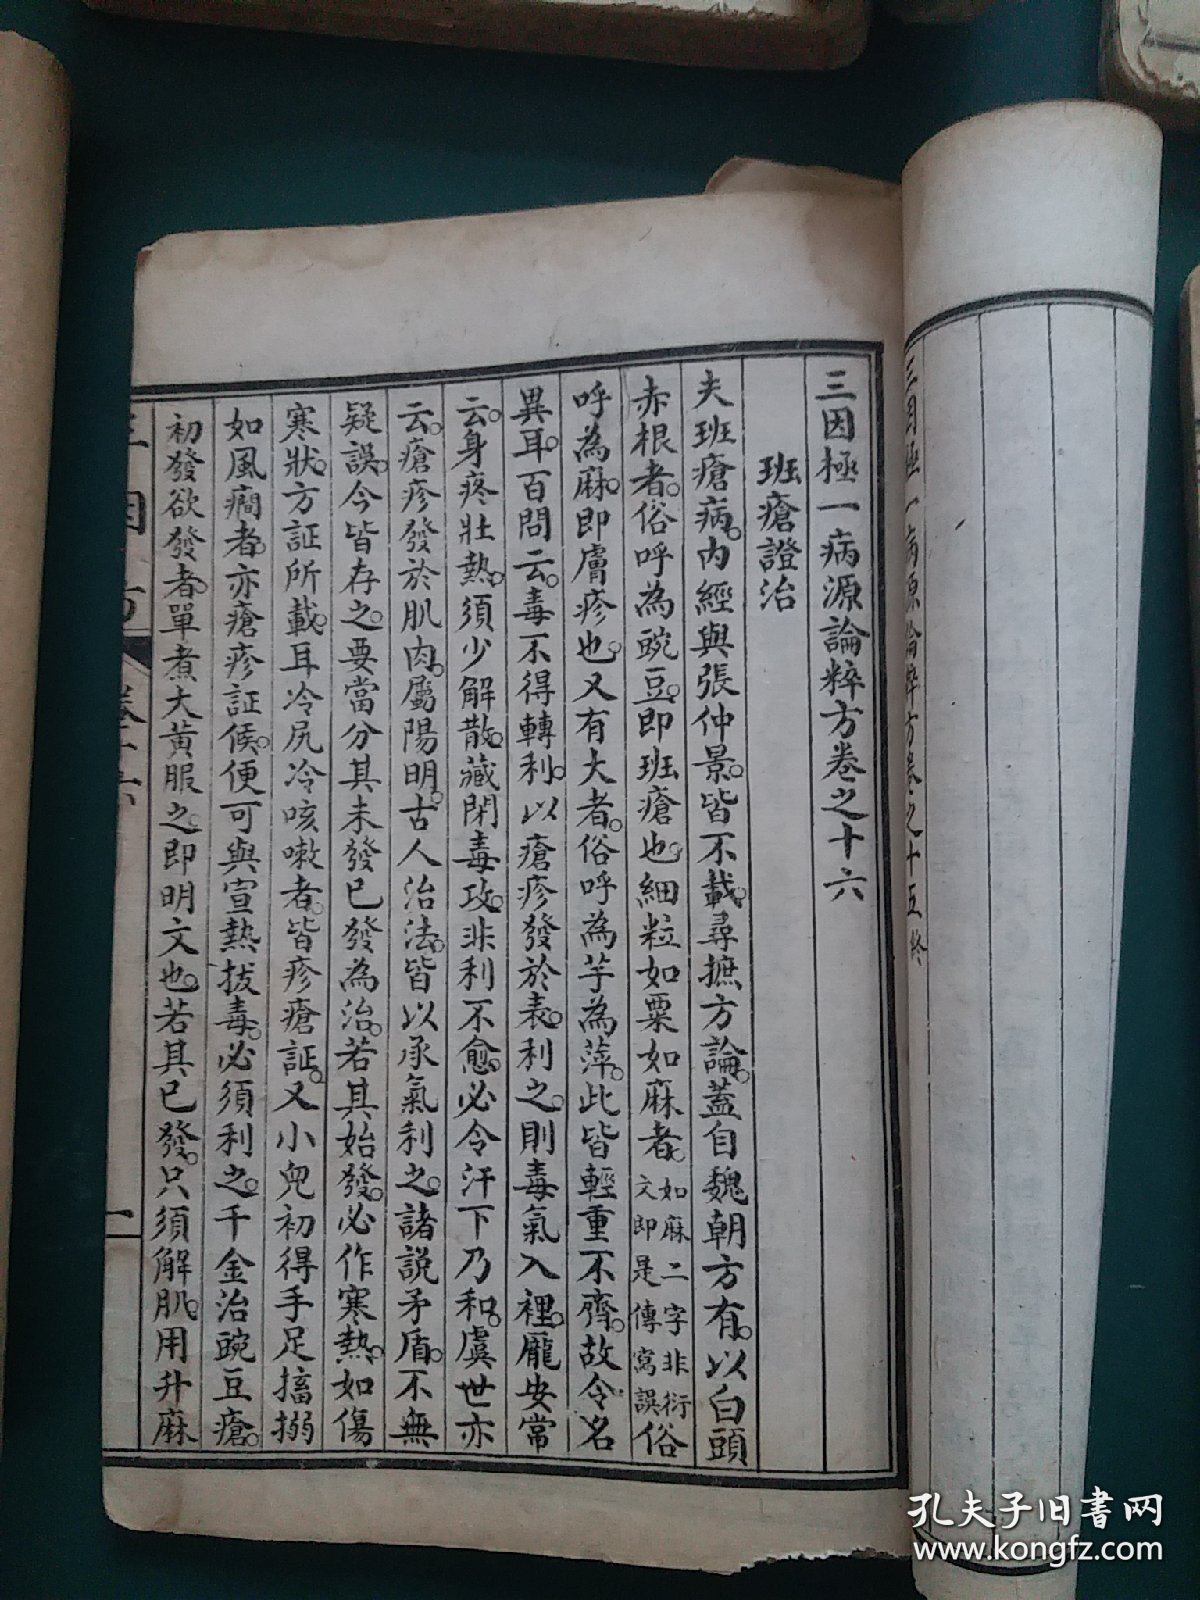 三因極一病源論粹方卷之十五終
三因極一病源論粹方卷之十六
班瘡證治
夫班瘡病。內經與張仲景。皆不載。尋摭方論。蓋自魏朝方有。以白頭
赤根者。俗呼為豌豆。即班瘡也。細粒如粟如麻者。如麻二字非衍文即是傳寫誤俗
呼為麻。即膚疹也。又有大者。俗呼為芋為萍。此皆輕重不齊。故令名
異耳。百問云。毒不得轉利。以瘡疹發於表。利之。則毒氣入裡。龐安常
云。身疼壯熱。須少解散。藏閉毒攻。非利不愈。必令汗下乃和。虞世亦
云。瘡疹發於肌肉。屬陽明。古人治法。皆以承氣利之。諸說矛盾。不無
疑誤。今皆存之。要當分其未發已發為治。若其始發。必作寒熱。如傷
寒狀。方証所載。耳冷尻冷咳嗽者。皆疹瘡証。又小兒初得手足搐搦
如風癎者。亦瘡疹証候。便可與宣熱拔毒。必須利之。千金治豌豆瘡。
初發欲發者。單煮大黃服之。即明文也。若其已發。只須解肌。用升麻
三因方
卷十六
一
孔夫子旧书网
www.kongfz.com